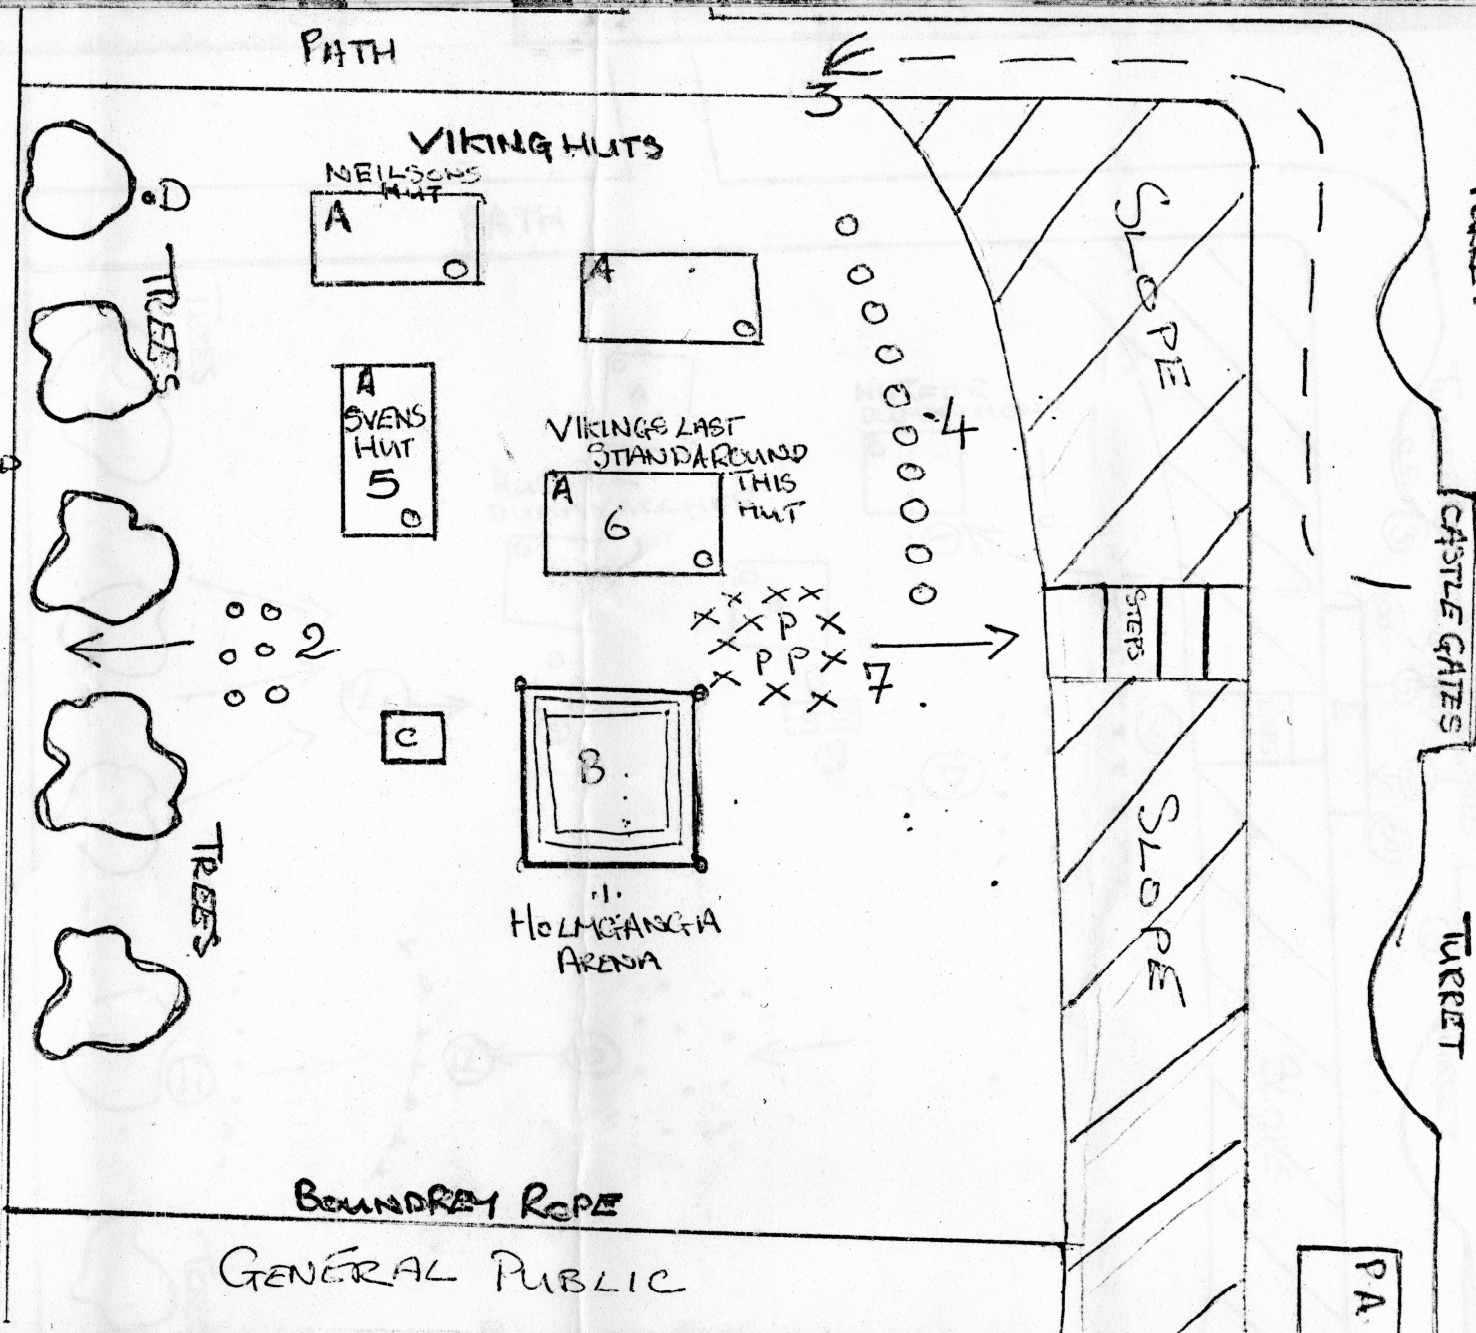 PATH
3
VIKING HUTS
NEILSONS
HUT
A
.D
TREES
A
SLOPE
A
SVENS
HUT
5
VIKINGS LAST
STAND AROUND
THIS
HUT
A
6
4
CASTLE GATES
STEPS
2
P
P P
7
C
B
SLOPE
TREES
.1.
HOLMGANGA
ARENA
TURRET
BOUNDREY ROPE
GENERAL PUBLIC
P.A.